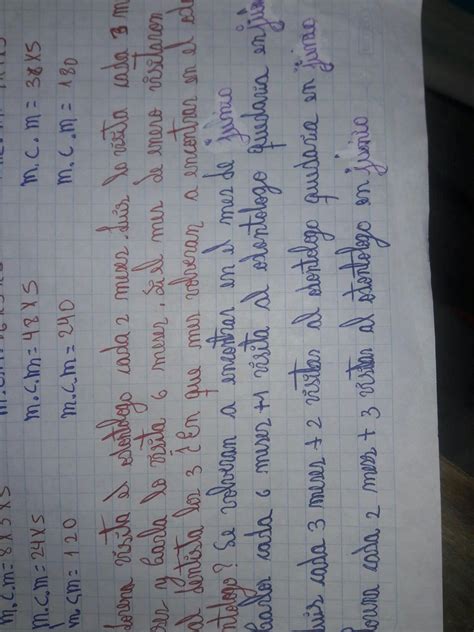 m.c.m= 8x3x5
m.c.m= 24x5 m.c.m= 48x5 m.c.m= 36x5
m.c.m= 120 m.c.m= 240 m.c.m= 180
visita el odontologo cada 2 meses. Luis lo visita cada 3 m
ses y Karla lo visita 6 meses. Si el mes de enero visitaron
al dentista los 3 ¿En que mes volveran a encontrar en el odo
ntologo? Se volveran a encontrar en el mes de junio
cada 6 meses +1 visita al odontologo quedaria en jun
Luis cada 3 meses + 2 visitas al odontologo quedaria en junio
cada 2 meses + 3 visitas al odontologo en junio